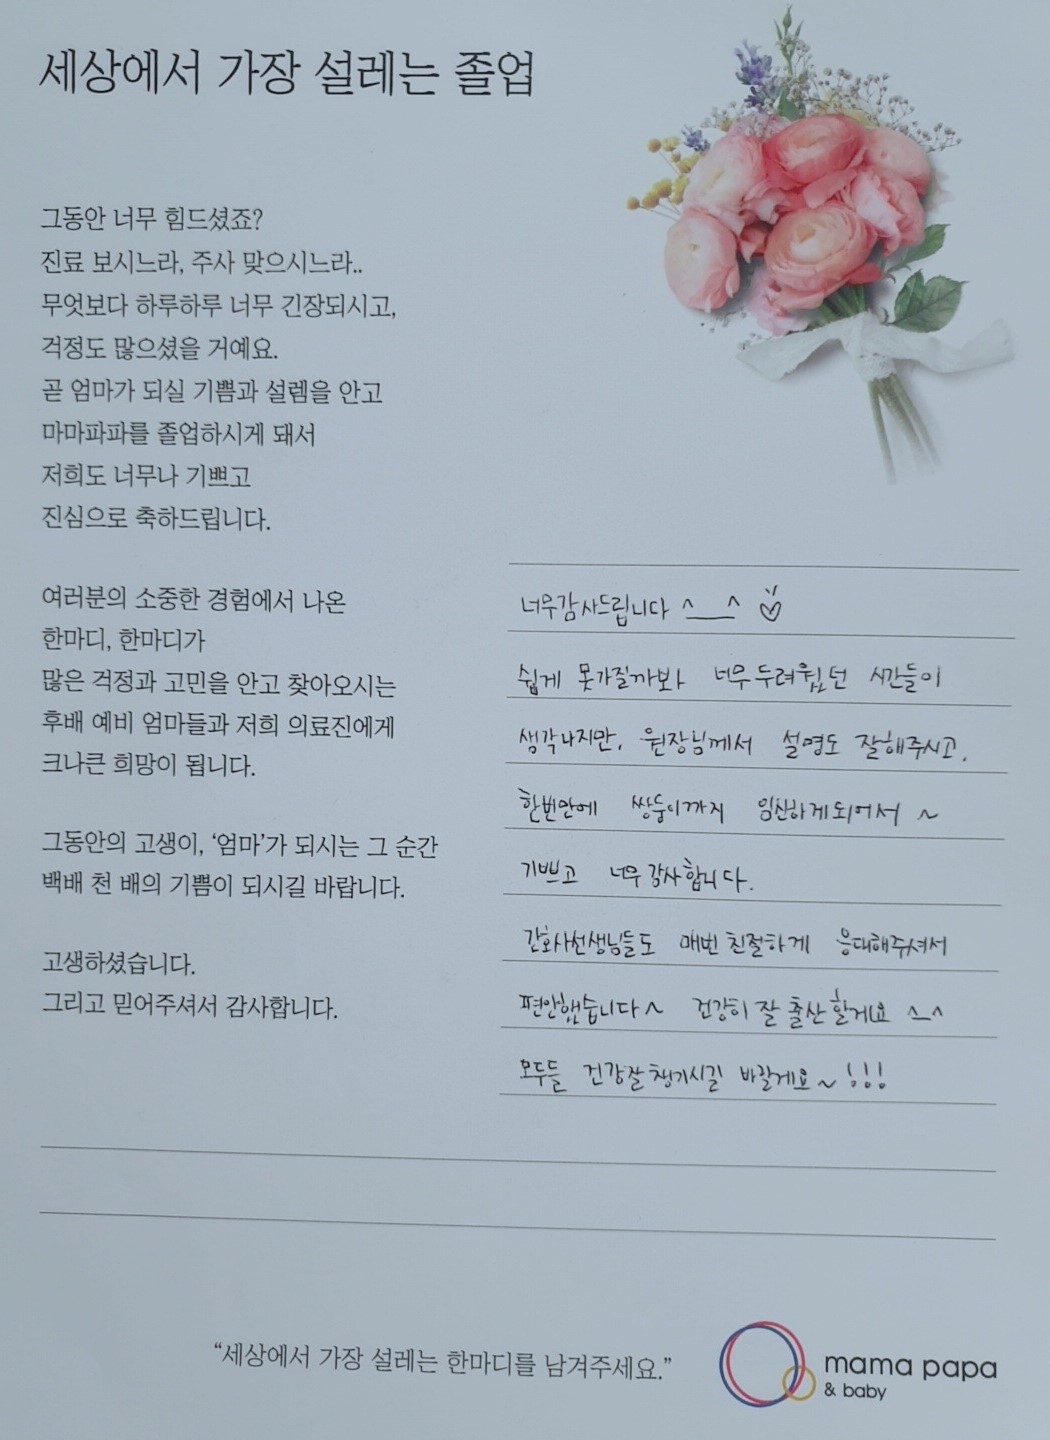 세상에서 가장 설레는 졸업
그동안 너무 힘드셨죠?
진료 보시느라, 주사 맞으시느라..
무엇보다 하루하루 너무 긴장되시고,
걱정도 많으셨을 거예요.
곧 엄마가 되실 기쁨과 설렘을 안고
마마파파를 졸업하시게 돼서
저희도 너무나 기쁘고
진심으로 축하드립니다.
여러분의 소중한 경험에서 나온
한마디, 한마디가
많은 걱정과 고민을 안고 찾아오시는
후배 예비 엄마들과 저희 의료진에게
크나큰 희망이 됩니다.
그동안의 고생이, ‘엄마’가 되시는 그 순간
백배 천 배의 기쁨이 되시길 바랍니다.
고생하셨습니다.
그리고 믿어주셔서 감사합니다.
너무감사드립니다 ^__^
쉽게 못가질까봐 너무두려웠던 시간들이
생각나지만, 원장님께서 설명도 잘해주시고,
한번만에 쌍둥이까지 임신하게되어서 ~
기쁘고 너무감사합니다.
간호사선생님들도 매번 친절하게 응대해주셔서
편안했습니다~ 건강히 잘 출산할게요 ^_^
모두들 건강잘챙기시길 바랄게요~!!!
“세상에서 가장 설레는 한마디를 남겨주세요.”
mama papa
& baby